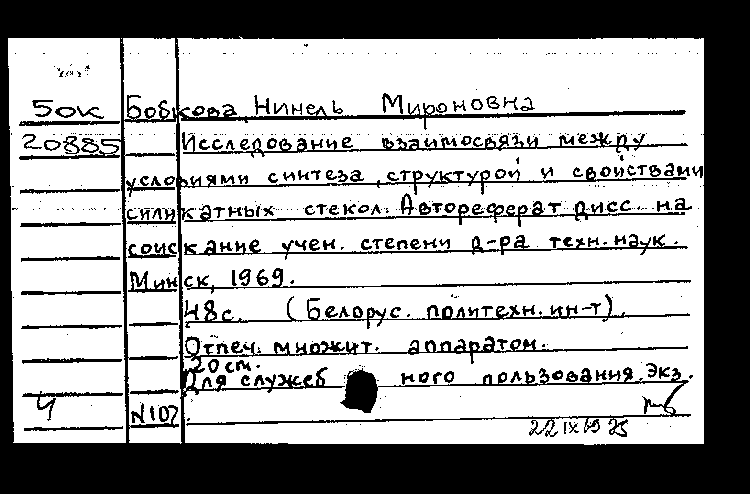 50к Бобкова, Нинель Мироновна
20885 Исследование взаимосвязи между
условиями синтеза, структурой и свойствами
силикатных стекол. Автореферат дисс. на
соискание учен. степени д-ра техн. наук.
Минск, 1969.
48с. (Белорус. политехн. ин-т).
Отпеч. множит. аппаратом.
20 см.
Для служебного пользования. Экз.
Ч N107
22 IX 69